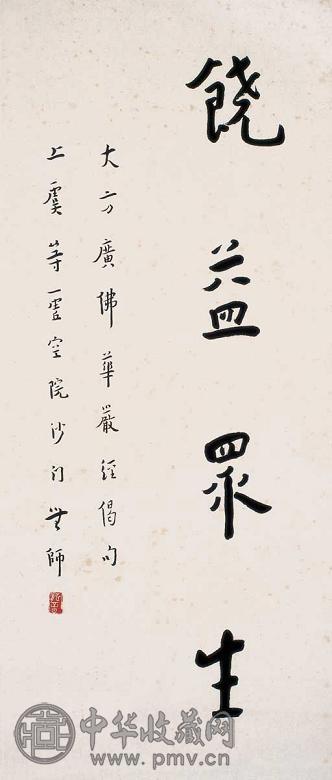 饒益眾生
大方廣佛華嚴經偈句
上虞等雲空院沙门無師
中华收藏网
www.pmv.cn